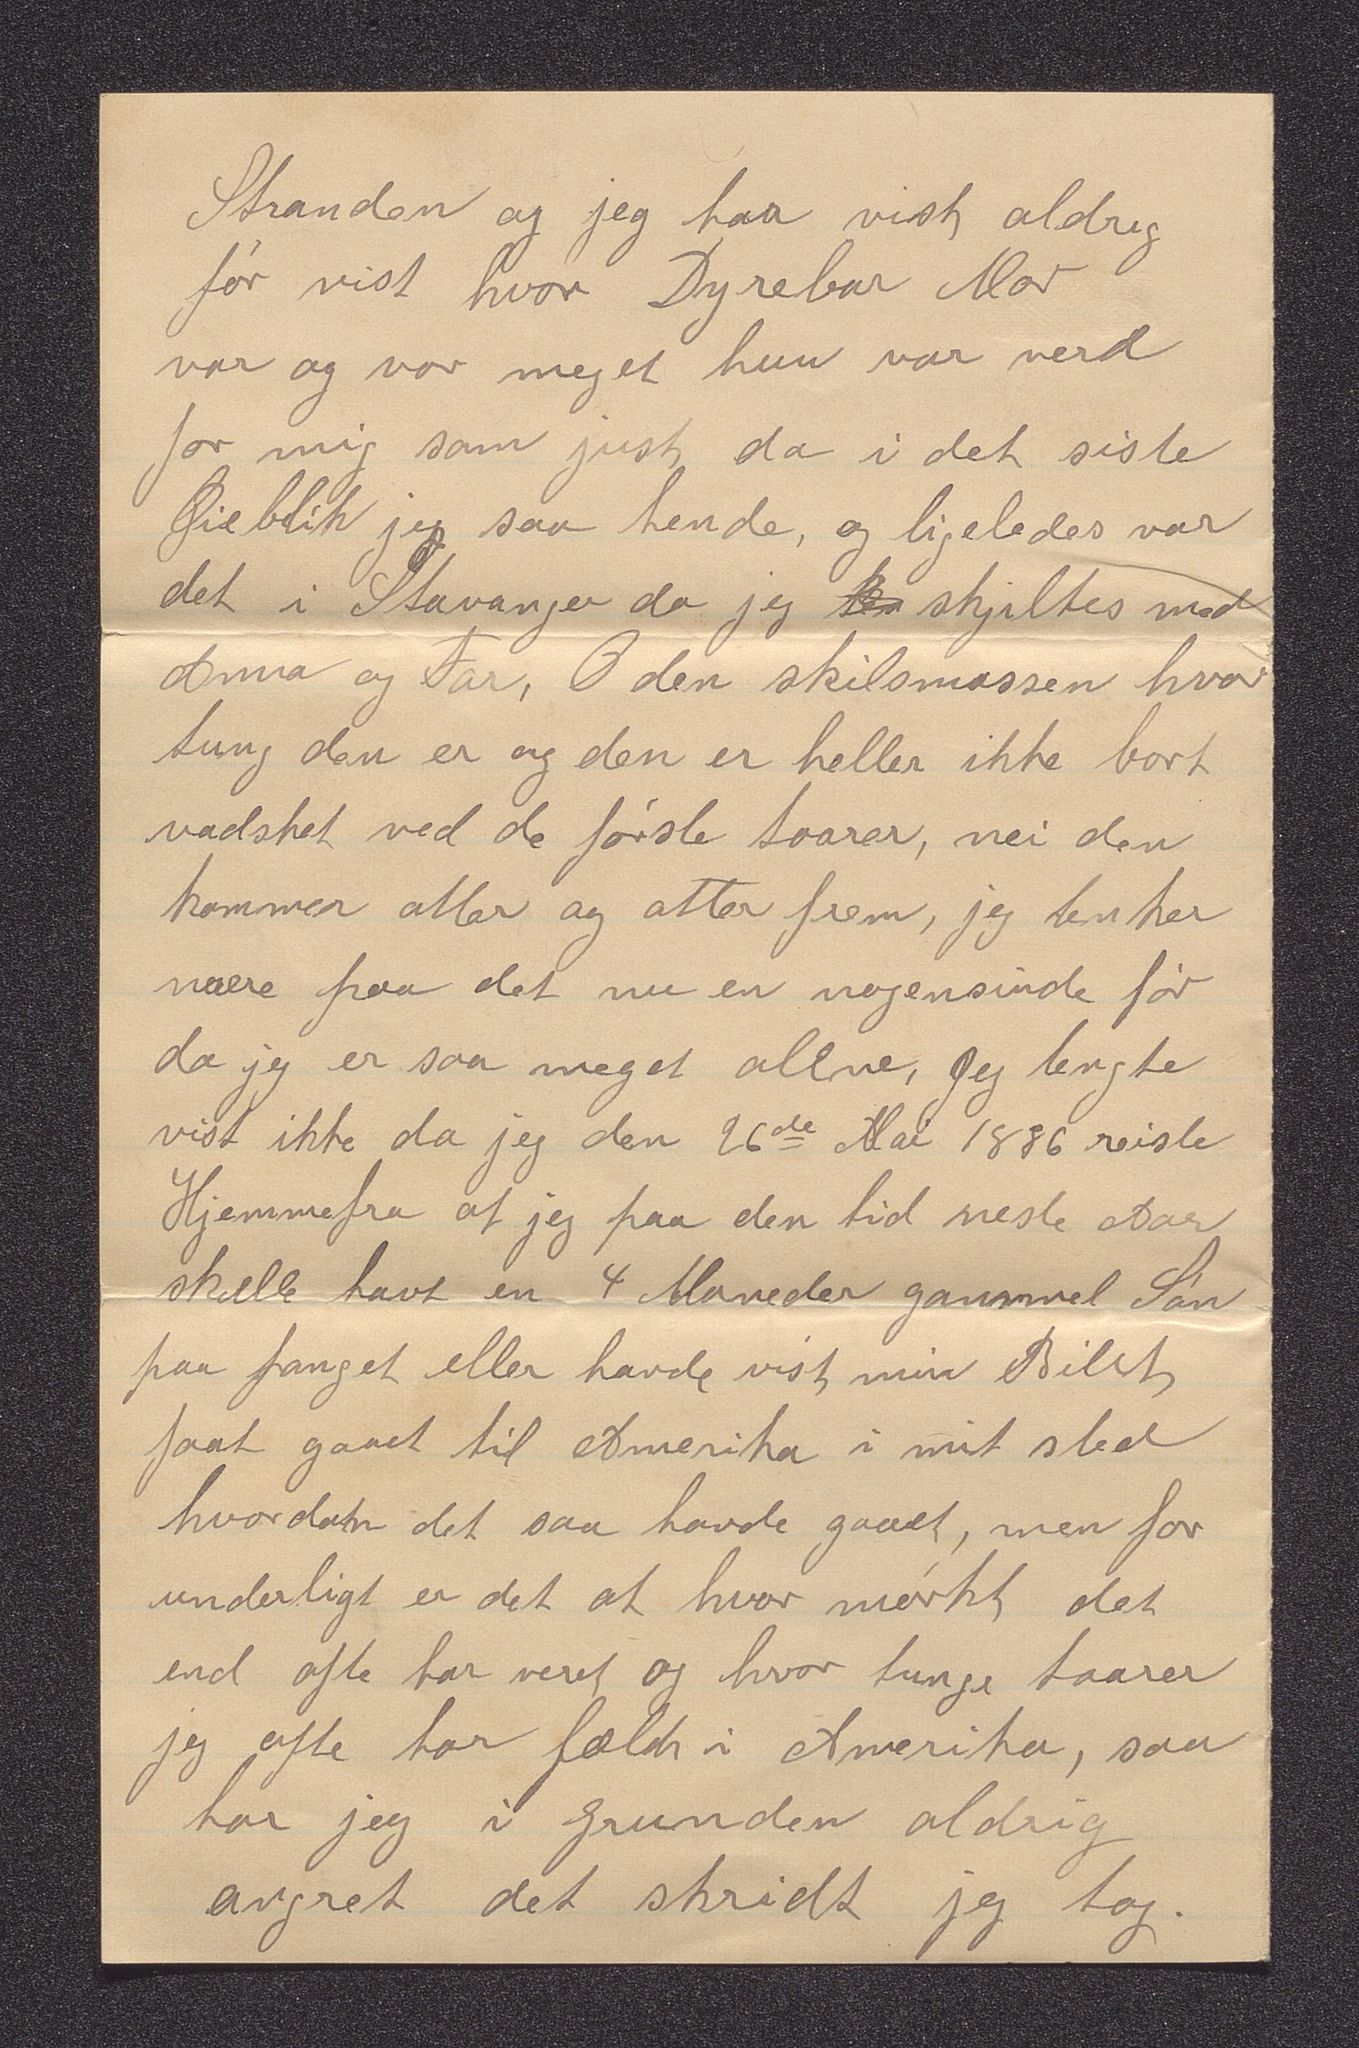 Stranden og jeg har vist aldreg
før vist hvor Dyrebar Mor
var og vor meget hun var verd
for mig som just da i det siste
Øieblik jeg saa hende, og ligeledes var
det i Stavanger da jeg skjiltes med
Anna og Far, O den skilsmassen hvor
tung den er og den er heller ikke bort
vadsket ved de første taarer, nei den
kommer atter og atter frem, jeg tenker
mere paa det nu en nogensinde før
da jeg er saa meget allne, Jeg tengte
vist ikke da jeg den 26de Mai 1886 reiste
Hjemmefra at jeg paa den tid neste Aar
skulle havt en 4 Maneder gammel Søn
paa fanget eller havde vist min Billet
faat gaaet til Amerika i mit sted
hvordan det saa havde gaaet, men for
underligt er det at hvor mørkt det
end ofte har veret og hvor tunge taarer
jeg ofte har fældt i Amerika, saa
har jeg i Grunden aldrig
angret det skridt jeg tog.